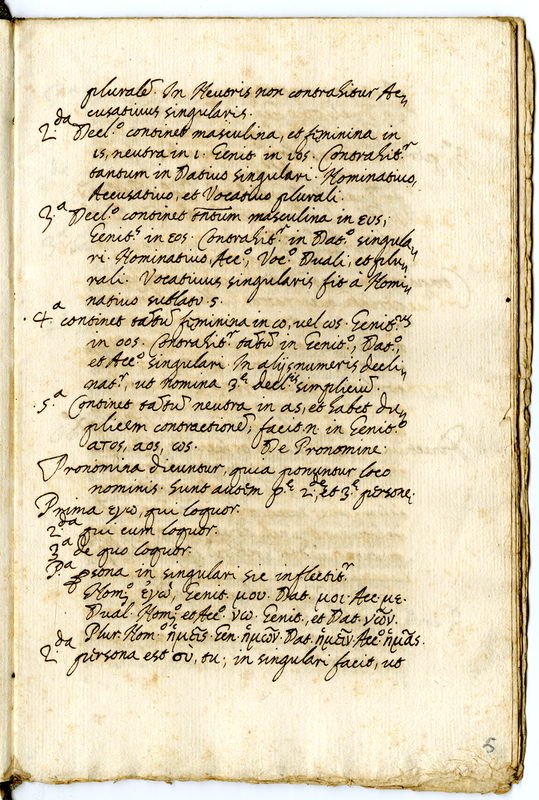 plurale͂. In Neutris non contrahitur Ac„
cusativus singularis.
2.da Decl.o continet masculina, et fęminina in
ις, neutra in ι. Genit. in ιος. Contrahit.r
tantum in Dativo singulari. Nominativo,
Accusativo, et Vocativo plurali.
3.a Decl.o continet tñtum masculina in ευς;
Genit.s in εος. Contrahit.r in Dat.o singula„
ri. Nominativo, Acc.o, Voc.o Duali, et plu„
rali. Vocativus singularis fit à Nomi„
nativo sublato ς.
4.a continet tãtũ fęminina in ω, vel ως. Genit.us
in οος. Contrahit.r tãtũ in Genit.o, Dat.o,
et Acc.o singulari. In alijs numeris decli„
nat.r, ut nomina 3.ę decl.is simpliciũ.
5.a Continet tãtũ neutra in ας, et habet du„
plicem contractionẽ, facit.n. in Genit.o
ατος, αος, ως. De Pronomine.
Pronomina dicuntur, quia ponuntur loco
nominis. Sunt autem p.ę 2.dę, et 3.ę personę.
Prima εγω, qui loquor.
2.da qui cum loquor.
3.a de quo loquor.
P.a ꝑsona in singulari sic inflectit.r
Nom.o ἐγώ, Genit. μου. Dat. μοι. Acc. με.
Dual. Nom.o et Acc.o νω. Genit., et Dat. νῶν.
Plur. Nom.o ἡμεῖς. Gen. ἡμῶν. Dat. ἡμῖν. Acc. ἡμᾶς.
2.da persona est σὺ, tu, in singulari facit, ut
5